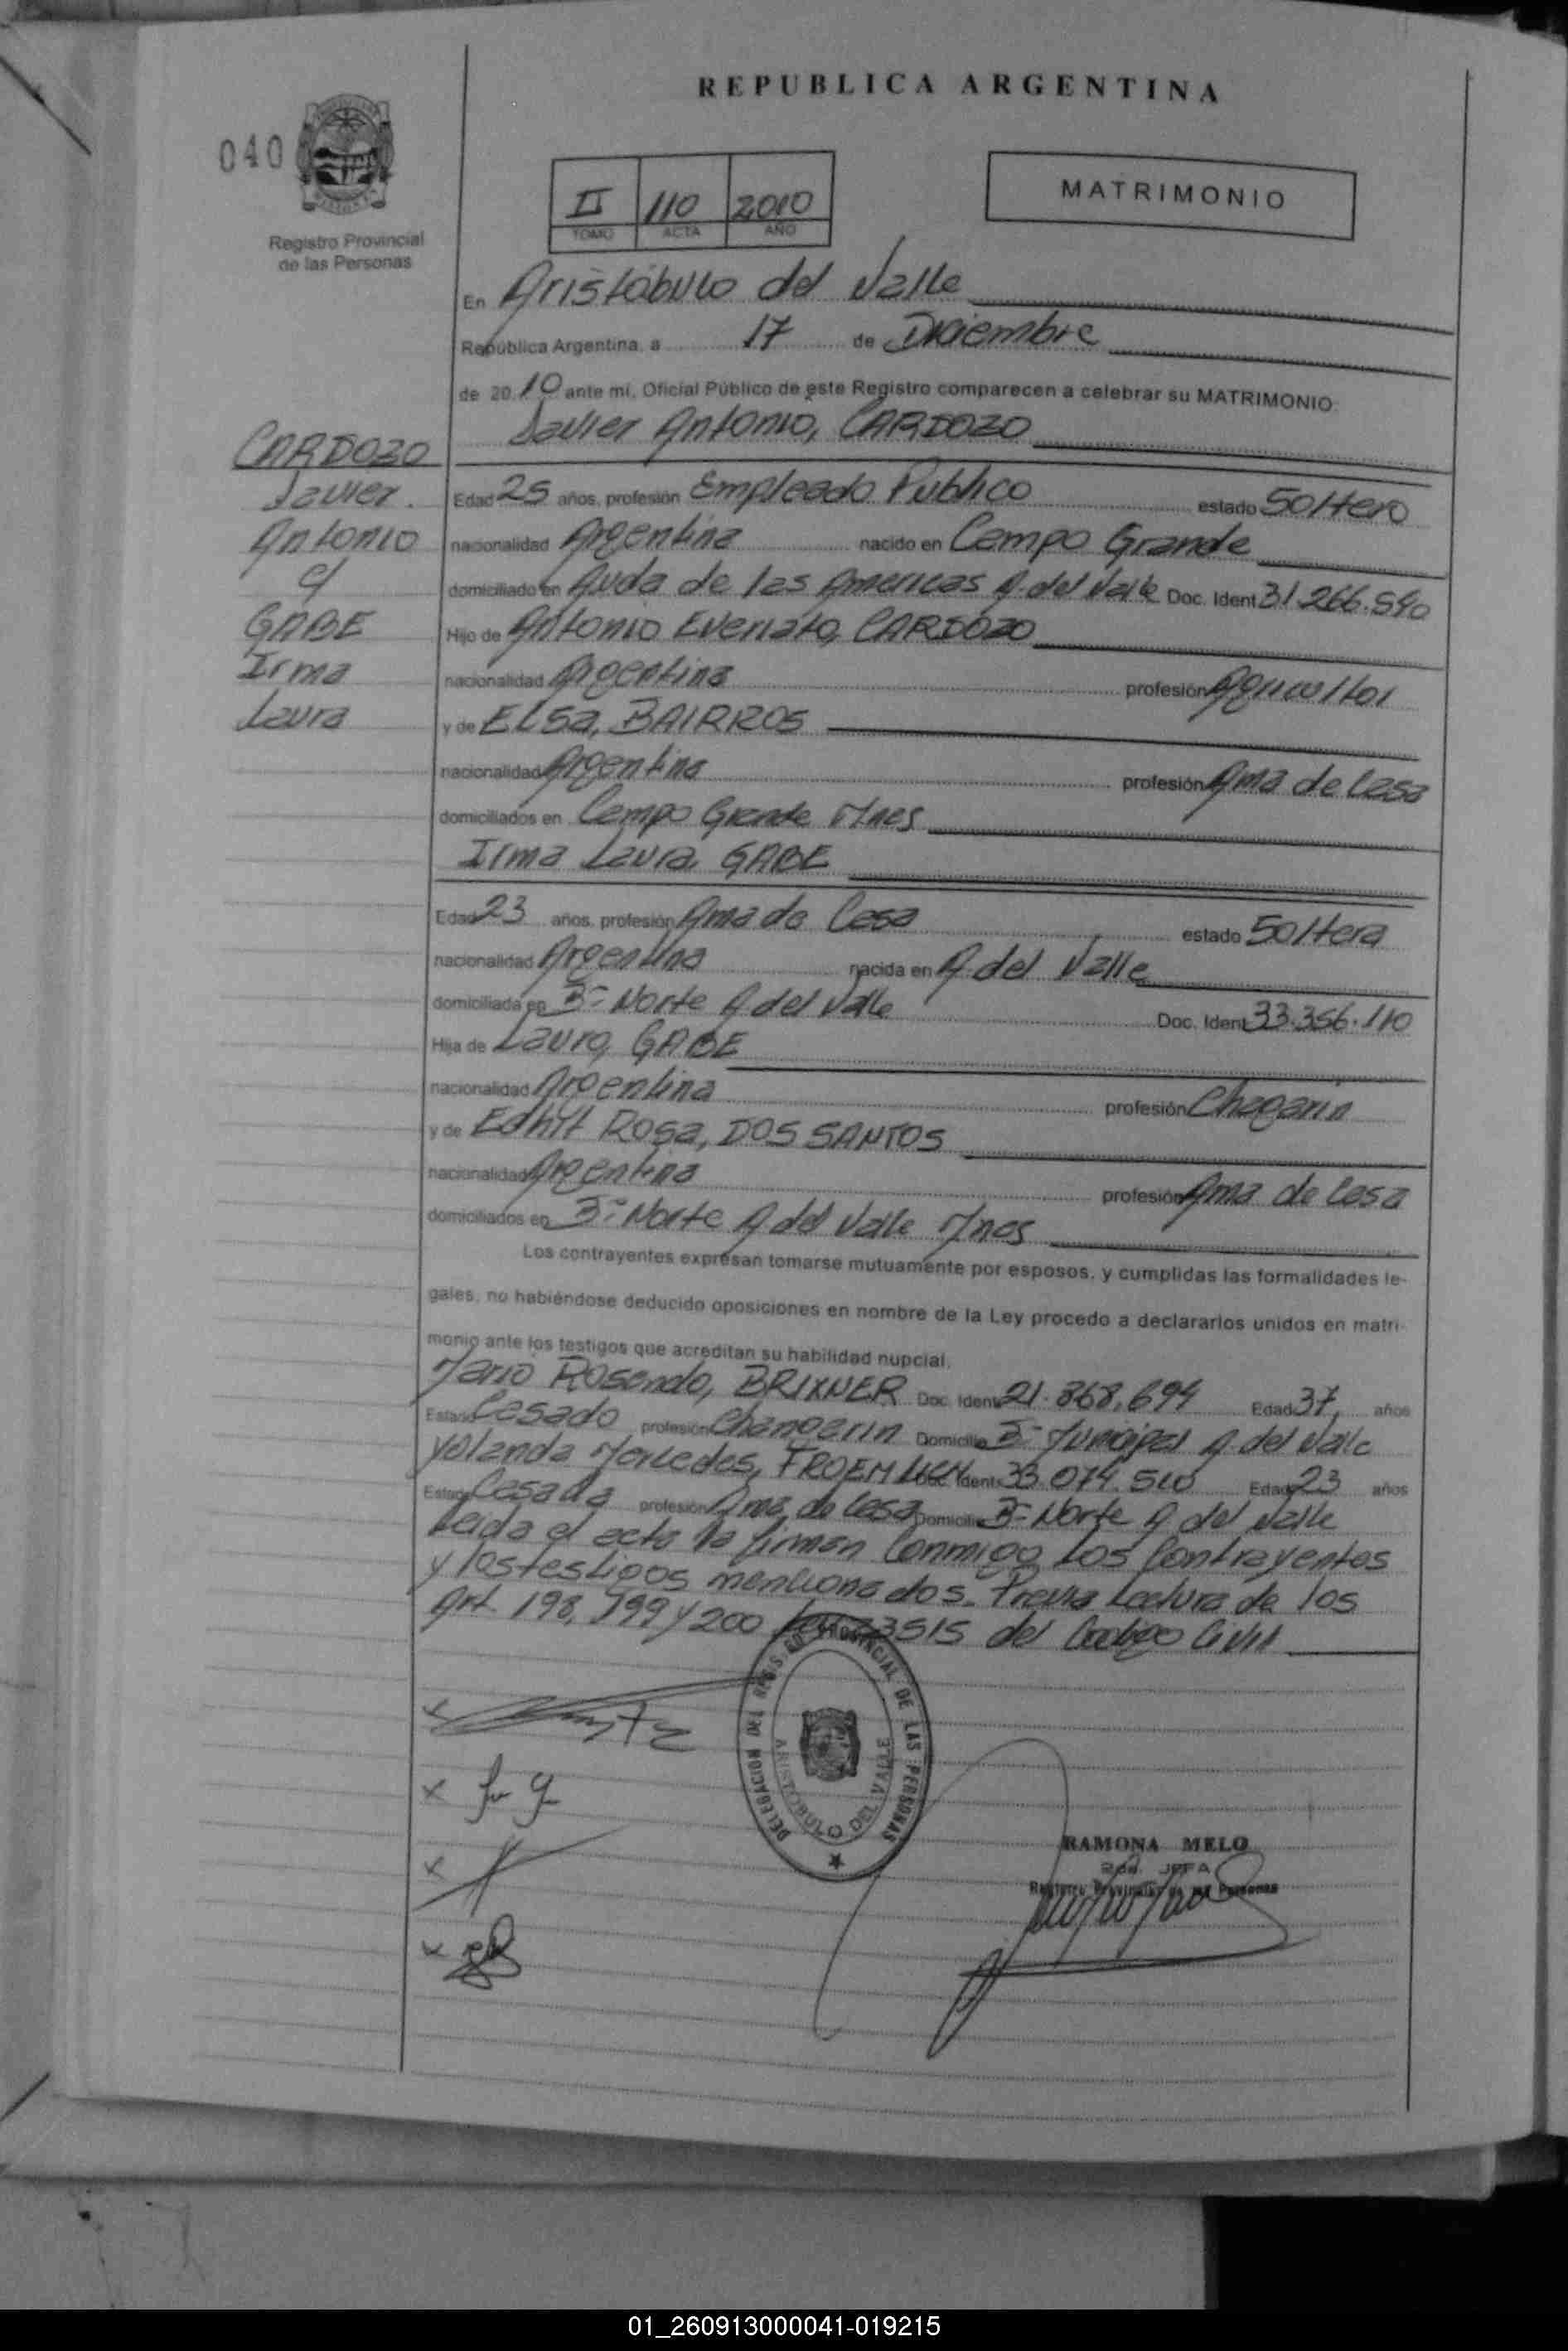 REPUBLICA ARGENTINA
040
Registro Provincial
de las Personas
II 110 2010
TOMO ACTA AÑO
MATRIMONIO
En Aristóbulo del Valle
República Argentina, a 17 de Diciembre
de 20 10 ante mí, Oficial Público de este Registro comparecen a celebrar su MATRIMONIO:
Javier Antonio, CARDOZO
CARDOZO
Javier.
Antonio
c/
GABE
Irma
Laura
Edad 25 años, profesión Empleado Publico estado Soltero
nacionalidad Argentina nacido en Campo Grande
domiciliado en Avda de las Americas A. del Valle Doc. Ident 31.266.540
Hijo de Antonio Everiato, CARDOZO
nacionalidad Argentina profesión Agricultor
y de ELSa, BAIRROS
nacionalidad Argentina profesión Ama de Casa
domiciliados en Campo Grande Mnes
Irma Laura GABE
Edad 23 años, profesión Ama de Casa estado Soltera
nacionalidad Argentina nacida en A. del Valle
domiciliada en Bº Norte A del Valle Doc. Ident 33.356.110
Hija de Lauro, GABE
nacionalidad Argentina profesión Changarin
y de Edhit Rosa, DOS SANTOS
nacionalidad Argentina profesión Ama de Casa
domiciliados en Bº Norte A del Valle Mnes
Los contrayentes expresan tomarse mutuamente por esposos, y cumplidas las formalidades le-
gales, no habiéndose deducido oposiciones en nombre de la Ley procedo a declararlos unidos en matri-
monio ante los testigos que acreditan su habilidad nupcial.
Mario Rosendo, BRIXNER Doc. Ident 21.868.694 Edad 37, años
Estado Casado profesión Changarin Domicilio Bº Municipal A. del Valle
Yolanda Mercedes, Doc. Ident 33.074.510 Edad 23 años
Estado Casada profesión Ama de Casa Domicilio Bº Norte A del Valle
Leida el acta la firman Conmigo Los Contrayentes
y los testigos mencionados. Previa Lectura de los
Art. 198, 199 y 200 Ley 23515 del Codigo Civil
DELEGACION DEL REGISTRO PROVINCIAL DE LAS PERSONAS
ARISTOBULO DEL VALLE
RAMONA MELO
2da. JEFA
Registro Provincial de las Personas
01_260913000041-019215